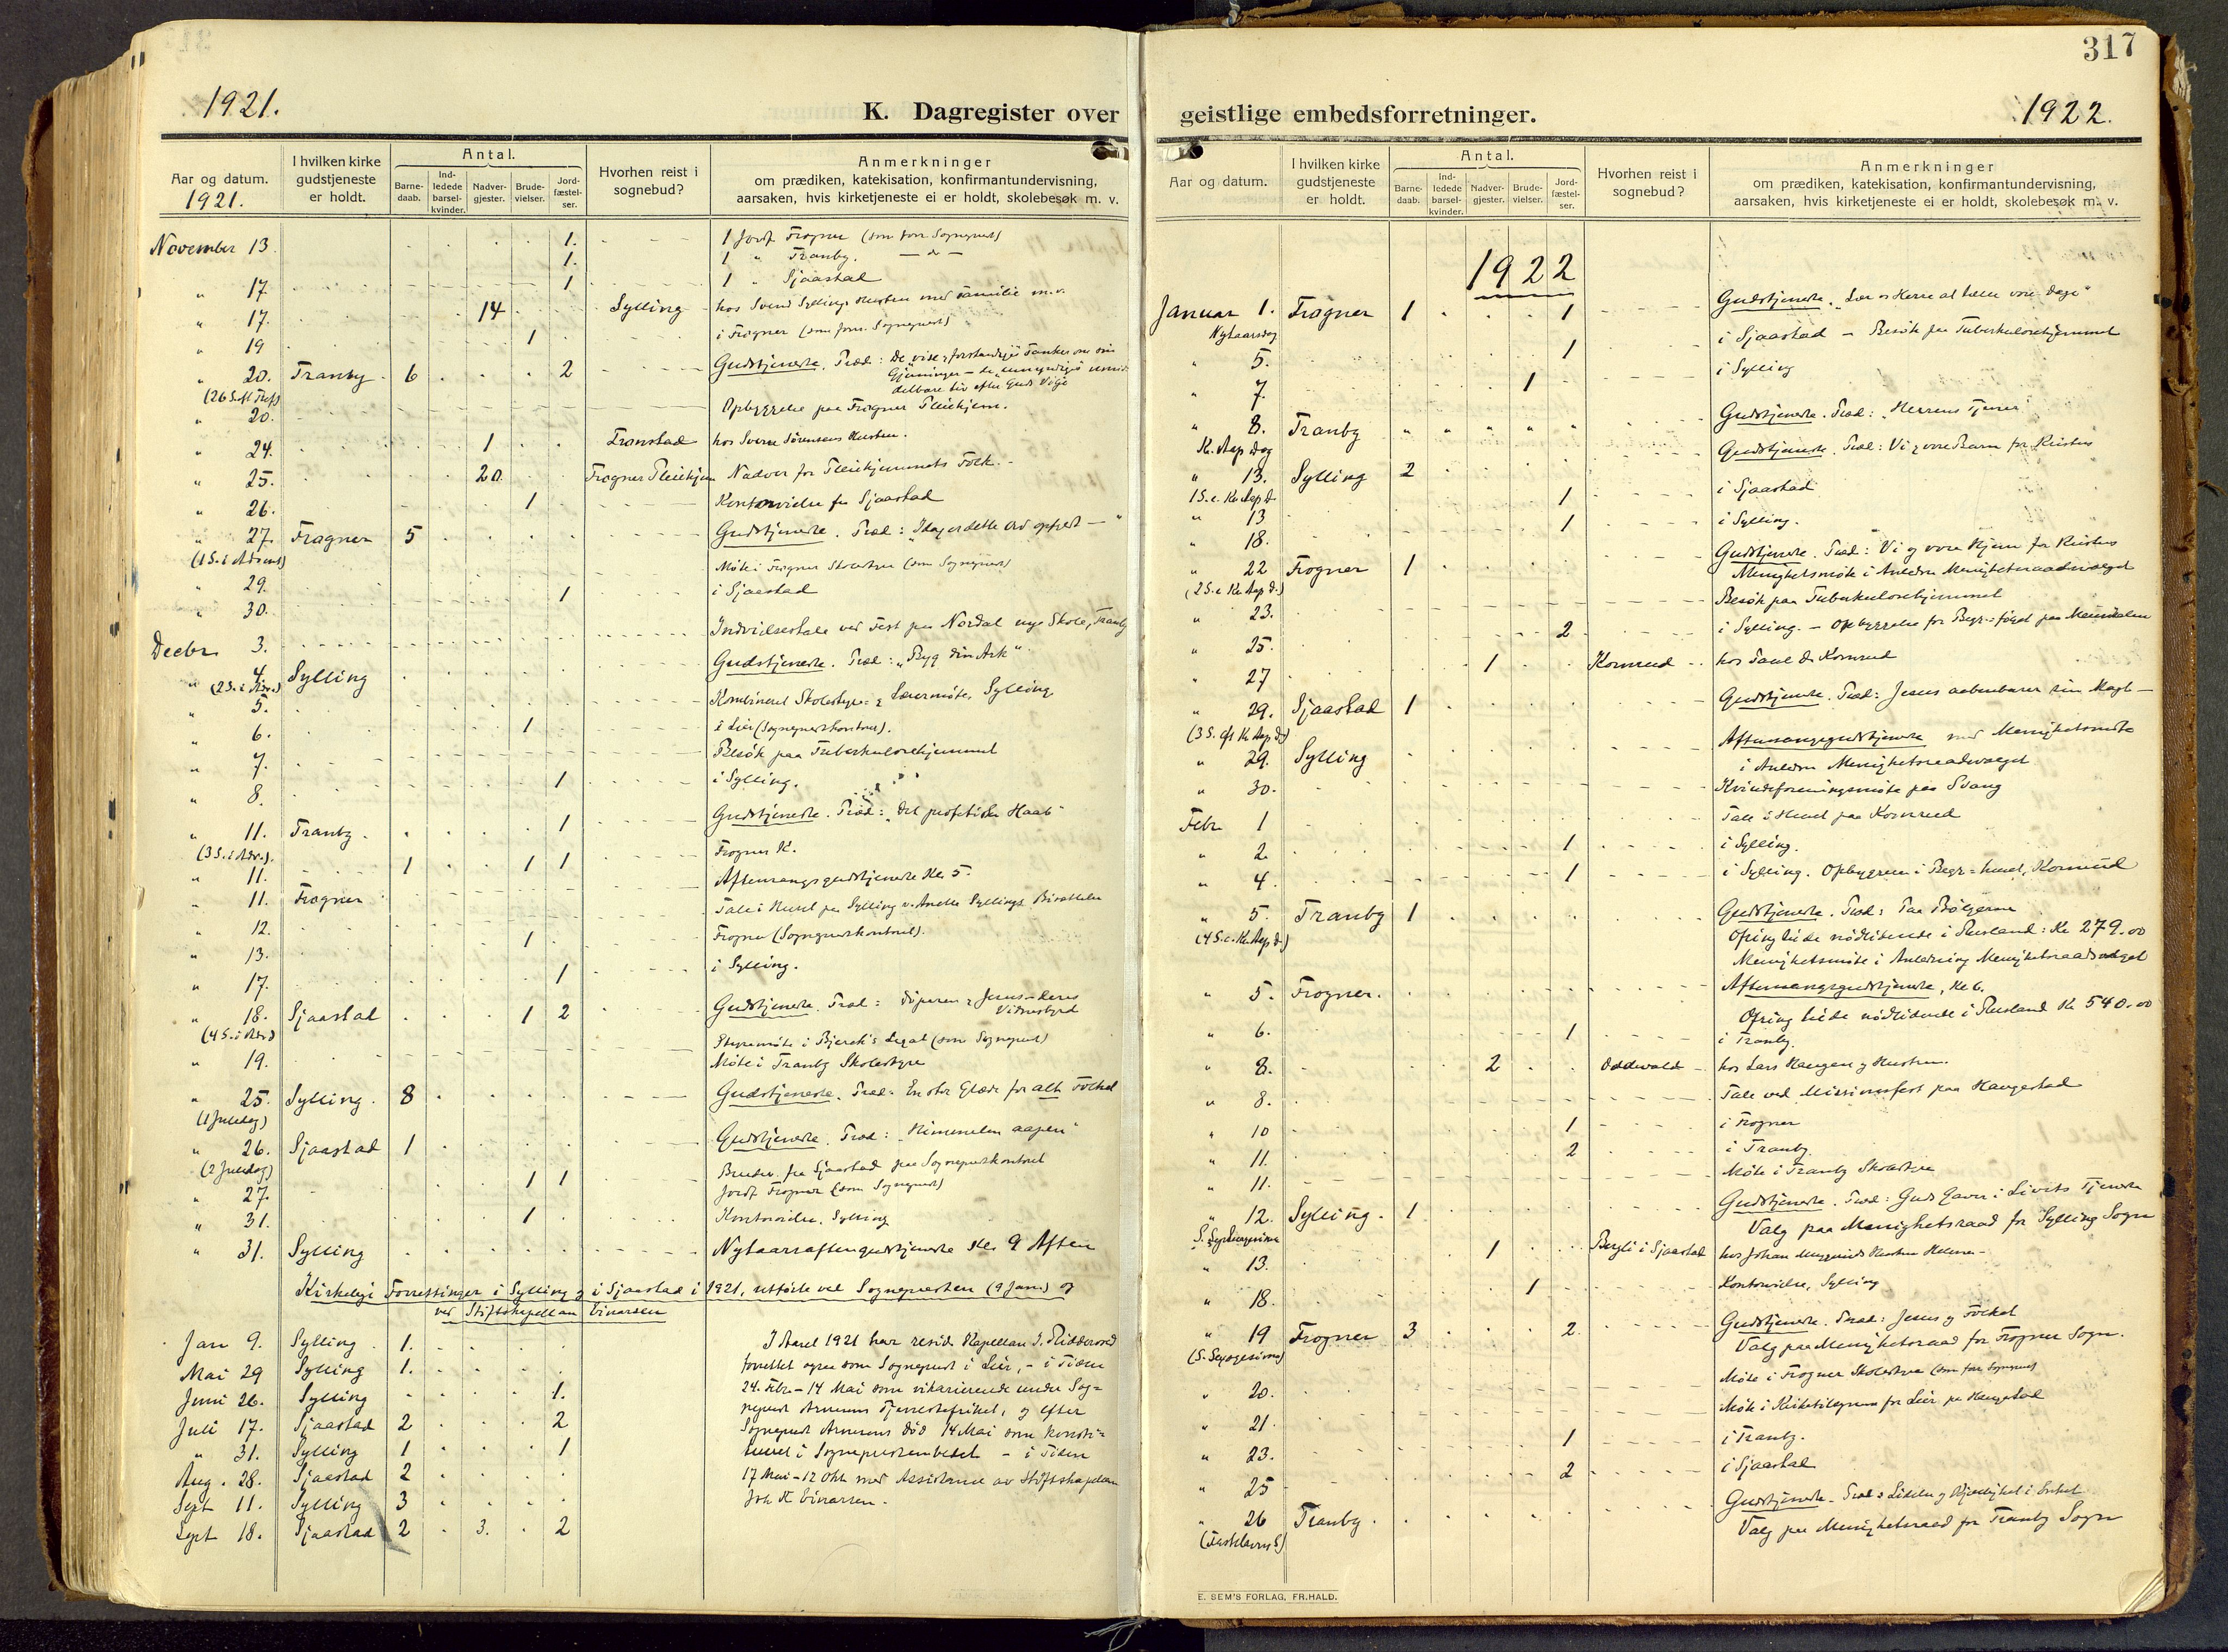 1921.
K. Dagregister over
Aar og datum.
1921.
I hvilken kirke gudstjeneste er holdt.
Antal.
Barne-daab.
Ind-ledede barsel-kvinder.
Nadver-gjester.
Brude-vielser.
Jord-fæstel-ser.
Hvorhen reist i sognebud?
Anmerkninger
om prædiken, katekisation, konfirmantundervisning,
aarsaken, hvis kirketjeneste ei er holdt, skolebesøk m. v.
November 13. 1. 1 Jordf Frogner (som forr. Sogneprest)
1. 1 " Tranby. — " —
" 17 1 1 " Sjaastad
" 17. 14 Sylling hos Svend Syllings Hustru med Familie m.v.
" 19 1 i Frogner (som forr. Sogneprest)
" 20. Tranby 6 2 Gudstjeneste. Præd: De vise
" 20. Opbyggelse paa Frogner Pleiehjem.
" 24. 1 Tronstad hos Sverre Sørensens Hustru.
" 25. 20. Frogner Pleiehjem Nadver for Pleiehjemmets Folk.
" 26. 1 Kontorvielse fra Sjaastad
" 27. Frogner 5 Gudstjeneste. Præd: Idag er dette Ord opfyldt —"
(1 S. i Advent)
" 29. Møte i Frogner Skolestyre (som Sogneprest)
" 30. 1 i Sjaastad
Decbr 3. Indvielsestale ved Fest paa Nordal nye Skole, Tranby
" 4. Sylling Gudstjeneste. Præd: "Byg din Ark"
(2 S. i Adv.)
" 5. Kombineret Skolestyre- og Lærermøte, Sylling
" 6. 1 i Lier (Sogneprestkontoret).
" 7. Besøk paa Tuberkulosehjemmet
" 8. 1 i Sylling.
" 11. Tranby. 1 Gudstjeneste. Præd: "Det profetiske Haab"
(3 S. i Adv.).
" 11. 1 1 1 Frogner K.
" 11. Frogner Aftensangsgudstjeneste Kl. 5.
" 12. Tale i Huset paa Sylling
" 13. 1 Frogner (Sogneprestkontoret).
" 17. 1 i Sylling.
" 18. Sjaastad 1 2 Gudstjeneste. Præd: Døperen og Jesus - deres
Vidnesbyrd
(4 S. i Adv.)
" 19. Styremøte i Bjerck's Legat (som Sogneprest)
Møte i Tranby Skolestyre
" 25. Sylling. 8 Gudstjeneste. Præd: En stor Glæde for alt Folket
(1 Juledag)
" 26. Sjaastad 1 Gudstjeneste. Præd: "Himmelen aapen"
(2 Juledag)
" 27. 1 1 Brudev. fra Sjaastad paa Sogneprestkontoret
Jordf Frogner (som Sogneprest)
" 31. 1 Kontorvielse, Sylling
" 31. Sylling Nytaarsaftengudstjeneste Kl. 9 Aften
Kirkelige Forretninger i Sylling og i Sjaastad i 1921, utførte ved Sognepresten (9 Jan) og
ved Stiftskapellan Einarsen
Jan 9. Sylling 1.
Mai 29 Sylling 1.
Juni 26. Sylling 1.
Juli 17. Sjaastad 2 2
" 31. Sylling 1 1
Aug. 28. Sjaastad 2
Sept 11. Sylling 3
Sept 18. Sjaastad 2 3. 2
I Aaret 1921 har resid. Kapellan J. Riddervold
forrettet ogsaa som Sogneprest i Lier, - i Tiden
24. Febr. - 14 Mai som vikarierende under Sog-
neprest Arnesens Tjenestefrihet, og efter
Sogneprest Arnesens Død 14 Mai som konsti-
tueret i Sogneprestembedet - i Tiden
17 Mai - 12 Okt. med Assistance av Stiftskapellan
Joh K Einarsen.
317
geistlige embedsforretninger.
1922.
Aar og datum.
I hvilken kirke gudstjeneste er holdt.
Antal.
Barne-daab.
Ind-ledede barsel-kvinder.
Nadver-gjester.
Brude-vielser.
Jord-fæstel-ser.
Hvorhen reist i sognebud?
Anmerkninger
om prædiken, katekisation, konfirmantundervisning,
aarsaken, hvis kirketjeneste ei er holdt, skolebesøk m. v.
1922
Januar 1. Frogner 1 1 Gudstjeneste. "Lær os Herre at tælle vore Dage"
Nytaarsdag
" 5. 1 i Sjaastad - Besøk paa Tuberkulosehjemmet
" 7. 1 i Sylling
" 8. Tranby " " " " " Gudstjeneste. Præd: "Herrens Tjener"
" 13. Sylling 2 Gudstjeneste. Præd: Vi og vore Barn for Kristus
" 13 1 i Sjaastad
" 18. 1 i Sylling.
" 22 Frogner 1 Gudstjeneste. Præd: Vi og vore Hjem for Kristus
Menighetsmøte i Anledn. Menighetsraadsvalget
" 23. Besøk paa Tuberkulosehjemmet
" 25. 2 i Sylling. - Opbyggelse
" 27 1 Kornrud hos Paul Kornrud
" 29. Sjaastad 1 Gudstjeneste. Præd: Jesus aabenbarer sin Magt -
" 29. Sylling Aftensangsgudstjeneste med Menighetsmøte
i Anledn. Menighetsraadsvalget
" 30. Kvindeforeningsmøte paa Svang
Febr 1 Tale i Huset paa Kornrud
" 2. 1 i Sylling.
" 4. 1 i Sylling. Opbyggelse i Kornrud
" 5. Tranby 1 Gudstjeneste. Præd: Paa Bølgerne
Ofring til de nødlidende i Rusland: Kr 279.00
Menighetsmøte i Anledning Menighetsraadsvalget
" 5. Frogner. Aftensangsgudstjeneste, Kl 6.
Ofring til de nødlidende i Rusland Kr 540.00
" 6. 1 i Tranby.
" 8. 2 Oddevald hos Lars Haugen og Hustru.
" 8. Tale ved Missionsfest paa Haugestad
" 10 1 i Frogner
" 11. 2 i Tranby.
" 11. Møte i Tranby Skolestyre
" 12. Sylling. 1 Gudstjeneste. Præd: Guds Gaver i Livets Tjeneste
Valg paa Menighetsraad for Sylling Sogn
S. Septuagesima
" 13. 1 i Sjaastad hos Johan
" 18. 1 Kontorvielse, Sylling
" 19 Frogner 3 2. Gudstjeneste. Præd: Jesus og Folket
Valg paa Menighetsraad for Frogner Sogn.
(S. Sexagesima)
" 20. Møte i Frogner Skolestyre (som forr. Sogneprest)
" 21. Møte i Kirketilsynet for Lier paa Haugestad
" 23. 1 i Tranby.
" 25 2 i Sjaastad
" 26 Tranby. Gudstjeneste - Præd:
Valg paa Menighetsraad for Tranby Sogn
(Fastelavns S)
E. SEM'S FORLAG, FR.HALD.